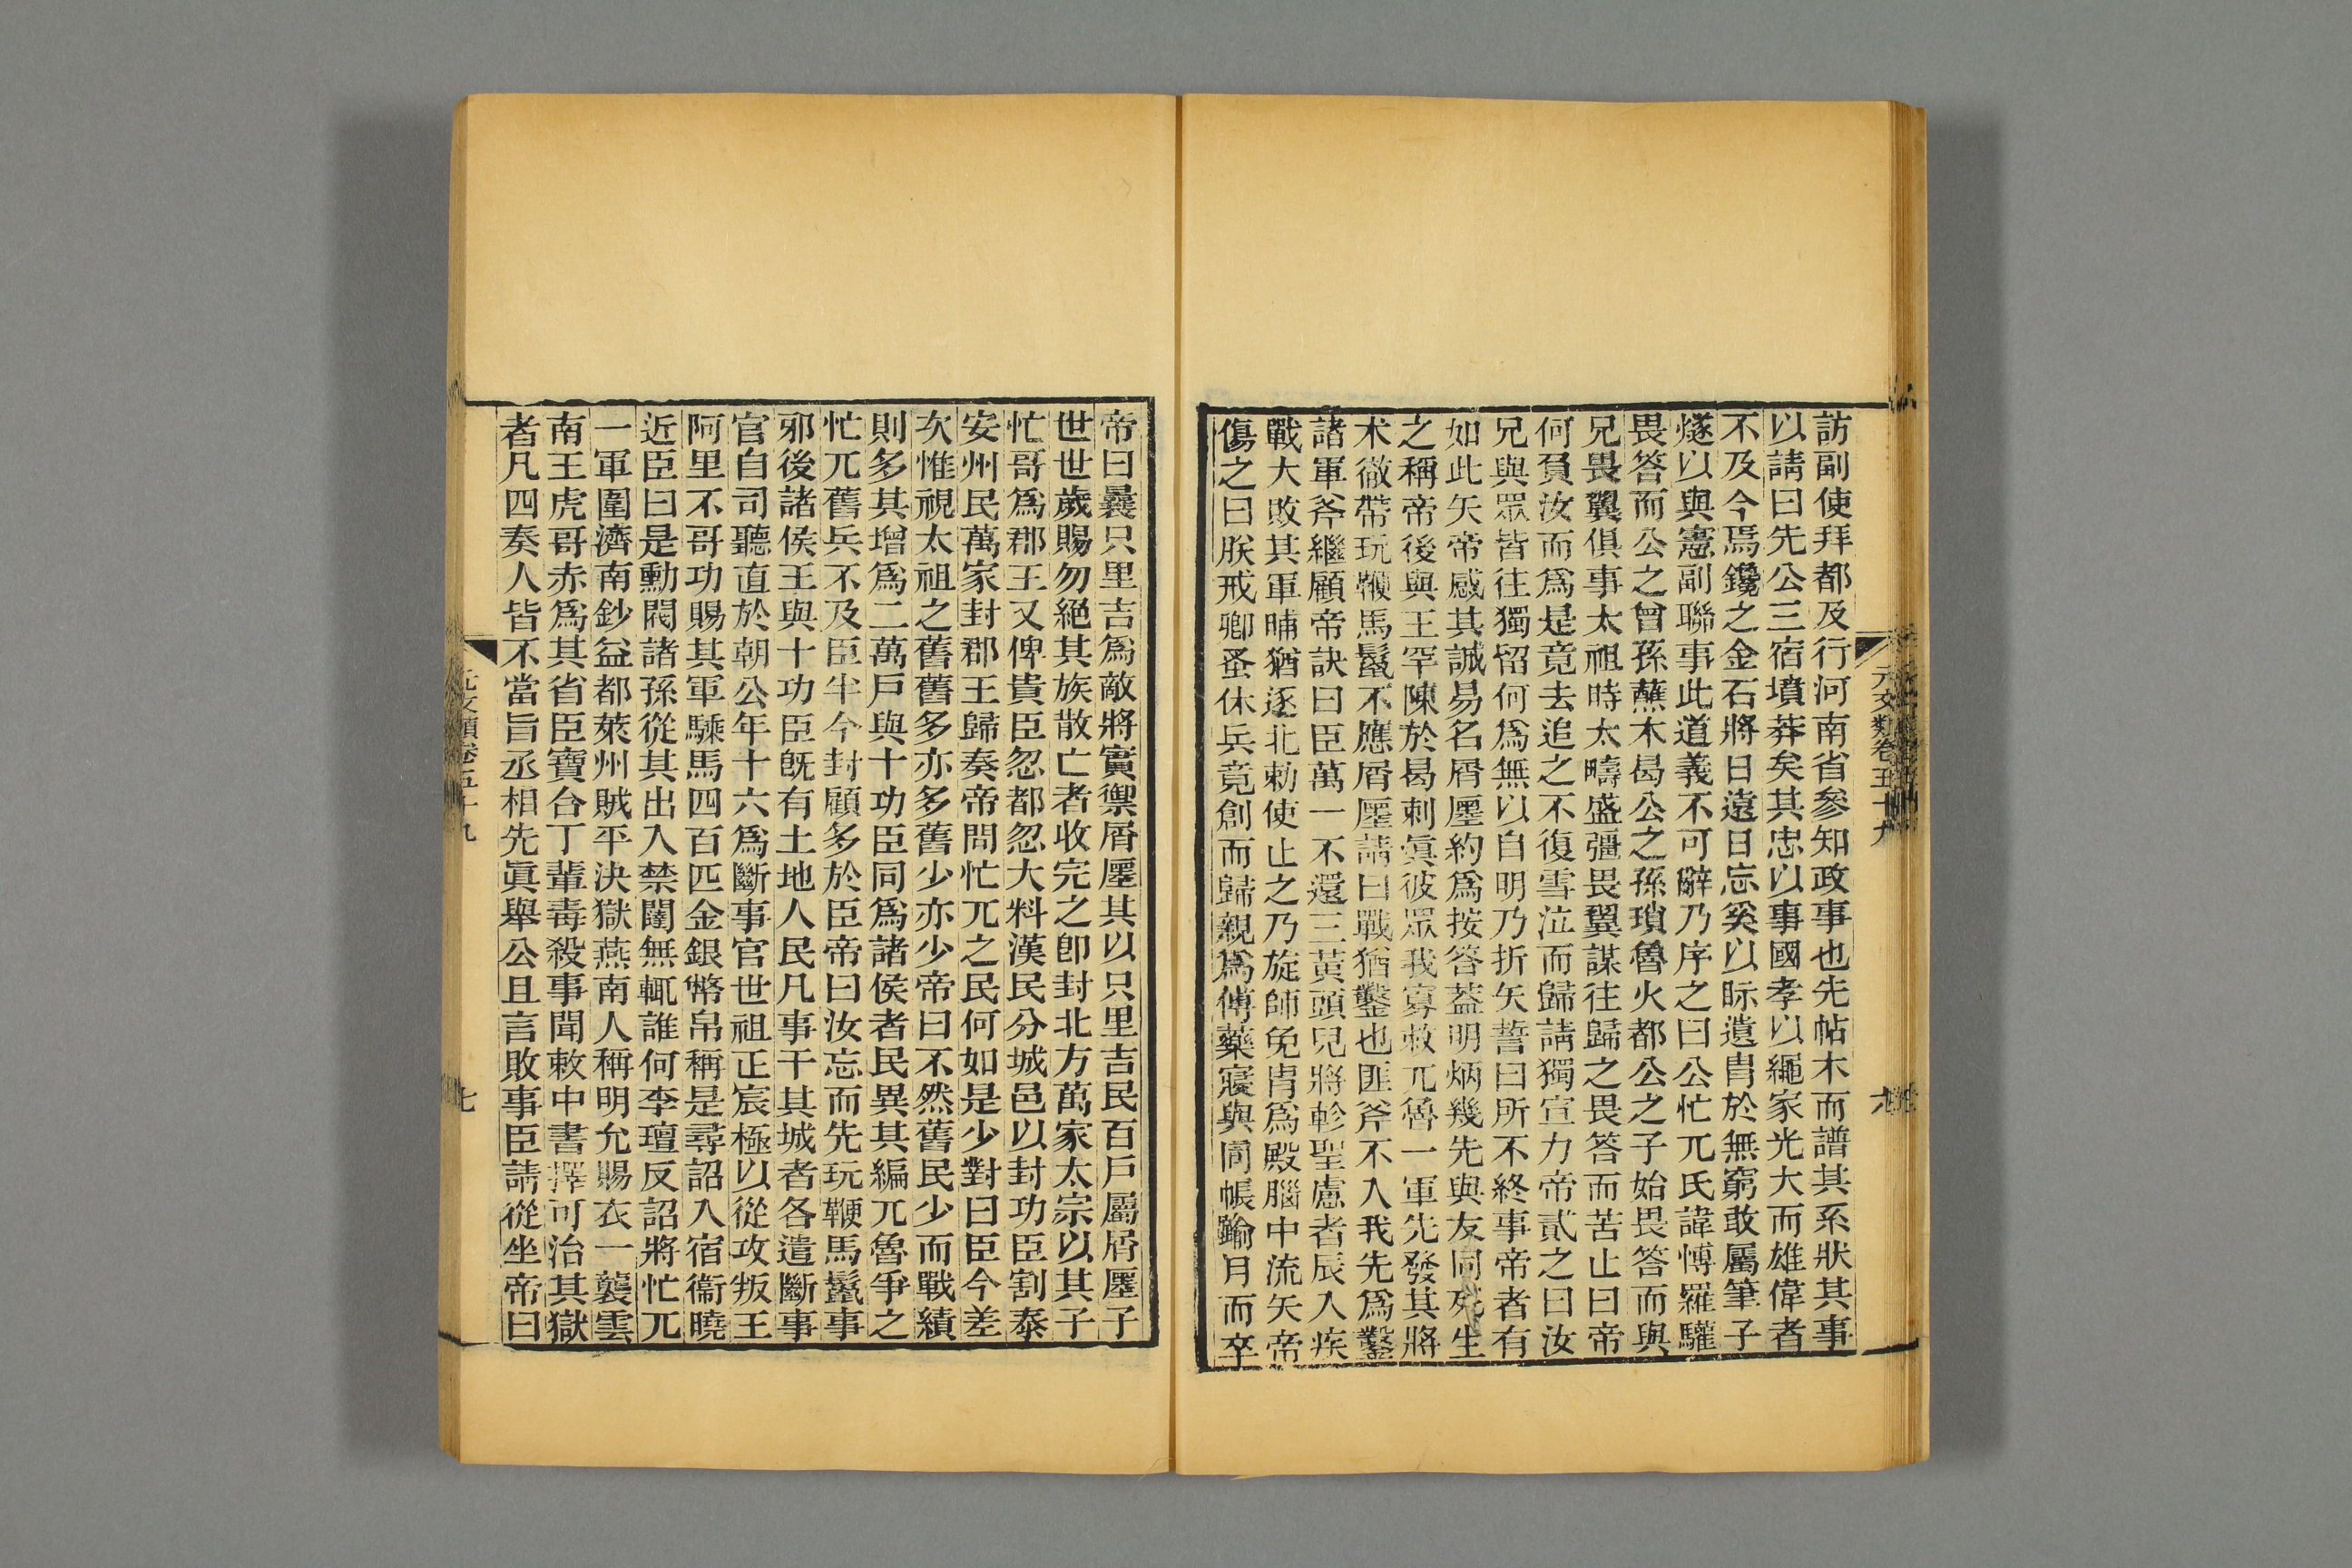 元文類卷五十九
六
訪副使拜都及行河南省參知政事也先帖木而譜其系狀其事
以請曰先公三宿墳莽矣其忠以事國孝以繩家光大而雄偉者
不及今焉鑱之金石將日遠日忘奚以眎遺胄於無窮敢屬筆子
燧以與憲副聯事此道義不可辭乃序之曰公忙兀氏諱愽羅驩
畏答而公之曾孫蘸木曷公之孫瑣魯火都公之子始畏答而與
兄畏翼俱事太祖時太疇盛彊畏翼謀往歸之畏答而苦止曰帝
何負汝而為是竟去追之不復雪泣而歸請獨宣力帝貳之曰汝
兄與眾皆往獨留何為無以自明乃折矢誓曰所不終事帝者有
如此矢帝感其誠易名屑廛約為按答葢明炳幾先與友同死生
之稱帝後與王罕陳於曷剌眞彼眾我寡敕兀魯一軍先發其將
术徹帶玩鞭馬鬣不應屑廛請曰戰猶鑿也匪斧不入我先為鑿
諸軍斧繼顧帝訣曰臣萬一不還三黃頭兒將軫聖慮者辰入疾
戰大敗其軍晡猶逐北勑使止之乃旋師免胄為殿腦中流矢帝
傷之曰朕戒卿蚤休兵竟創而歸親為傅藥寢與同帳踰月而卒
帝曰曩只里吉為敵將實禦屑廛其以只里吉民百戶屬屑廛子
世世歲賜勿絕其族散亡者收完之卽封北方萬家太宗以其子
忙哥為郡王又俾貴臣忽都忽大料漢民分城邑以封功臣割泰
安州民萬家封郡王歸奏帝問忙兀之民何如是少對曰臣今差
次惟視太祖之舊舊多亦多舊少亦少帝曰不然舊民少而戰績
則多其增為二萬戶與十功臣同為諸侯者民異其編兀魯爭之
忙兀舊兵不及臣半今封顧多於臣帝曰汝忘而先玩鞭馬鬣事
邪後諸侯王與十功臣旣有土地人民凡事干其城者各遣斷事
官自司聽直於朝公年十六為斷事官世祖正宸極以從攻叛王
阿里不哥功賜其軍騬馬四百匹金銀幣帛稱是尋詔入宿衞曉
近臣曰是勳閥諸孫從其出入禁闥無輒誰何李璮反詔將忙兀
一軍圍濟南鈔益都萊州賊平決獄燕南人稱明允賜衣一襲雲
南王虎哥赤為其省臣寶合丁輩毒殺事聞敕中書擇可治其獄
者凡四奏人皆不當旨丞相先眞舉公且言敗事臣請從坐帝曰
元文類卷五十九
七